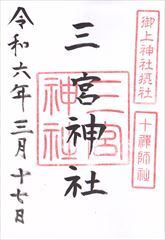 御上神社摂社
十禅師社
三宮神社
三宮
神社
令和六年三月十七日